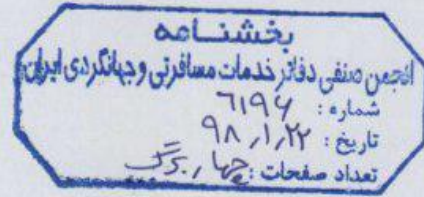 بخشنامه
انجمن صنفی دفاتر خدمات مسافرتی و جهانگردی ایران
شماره : ۶۱۹۶
تاریخ : ۹۸,۱,۲۲
تعداد صفحات : چهار برگ